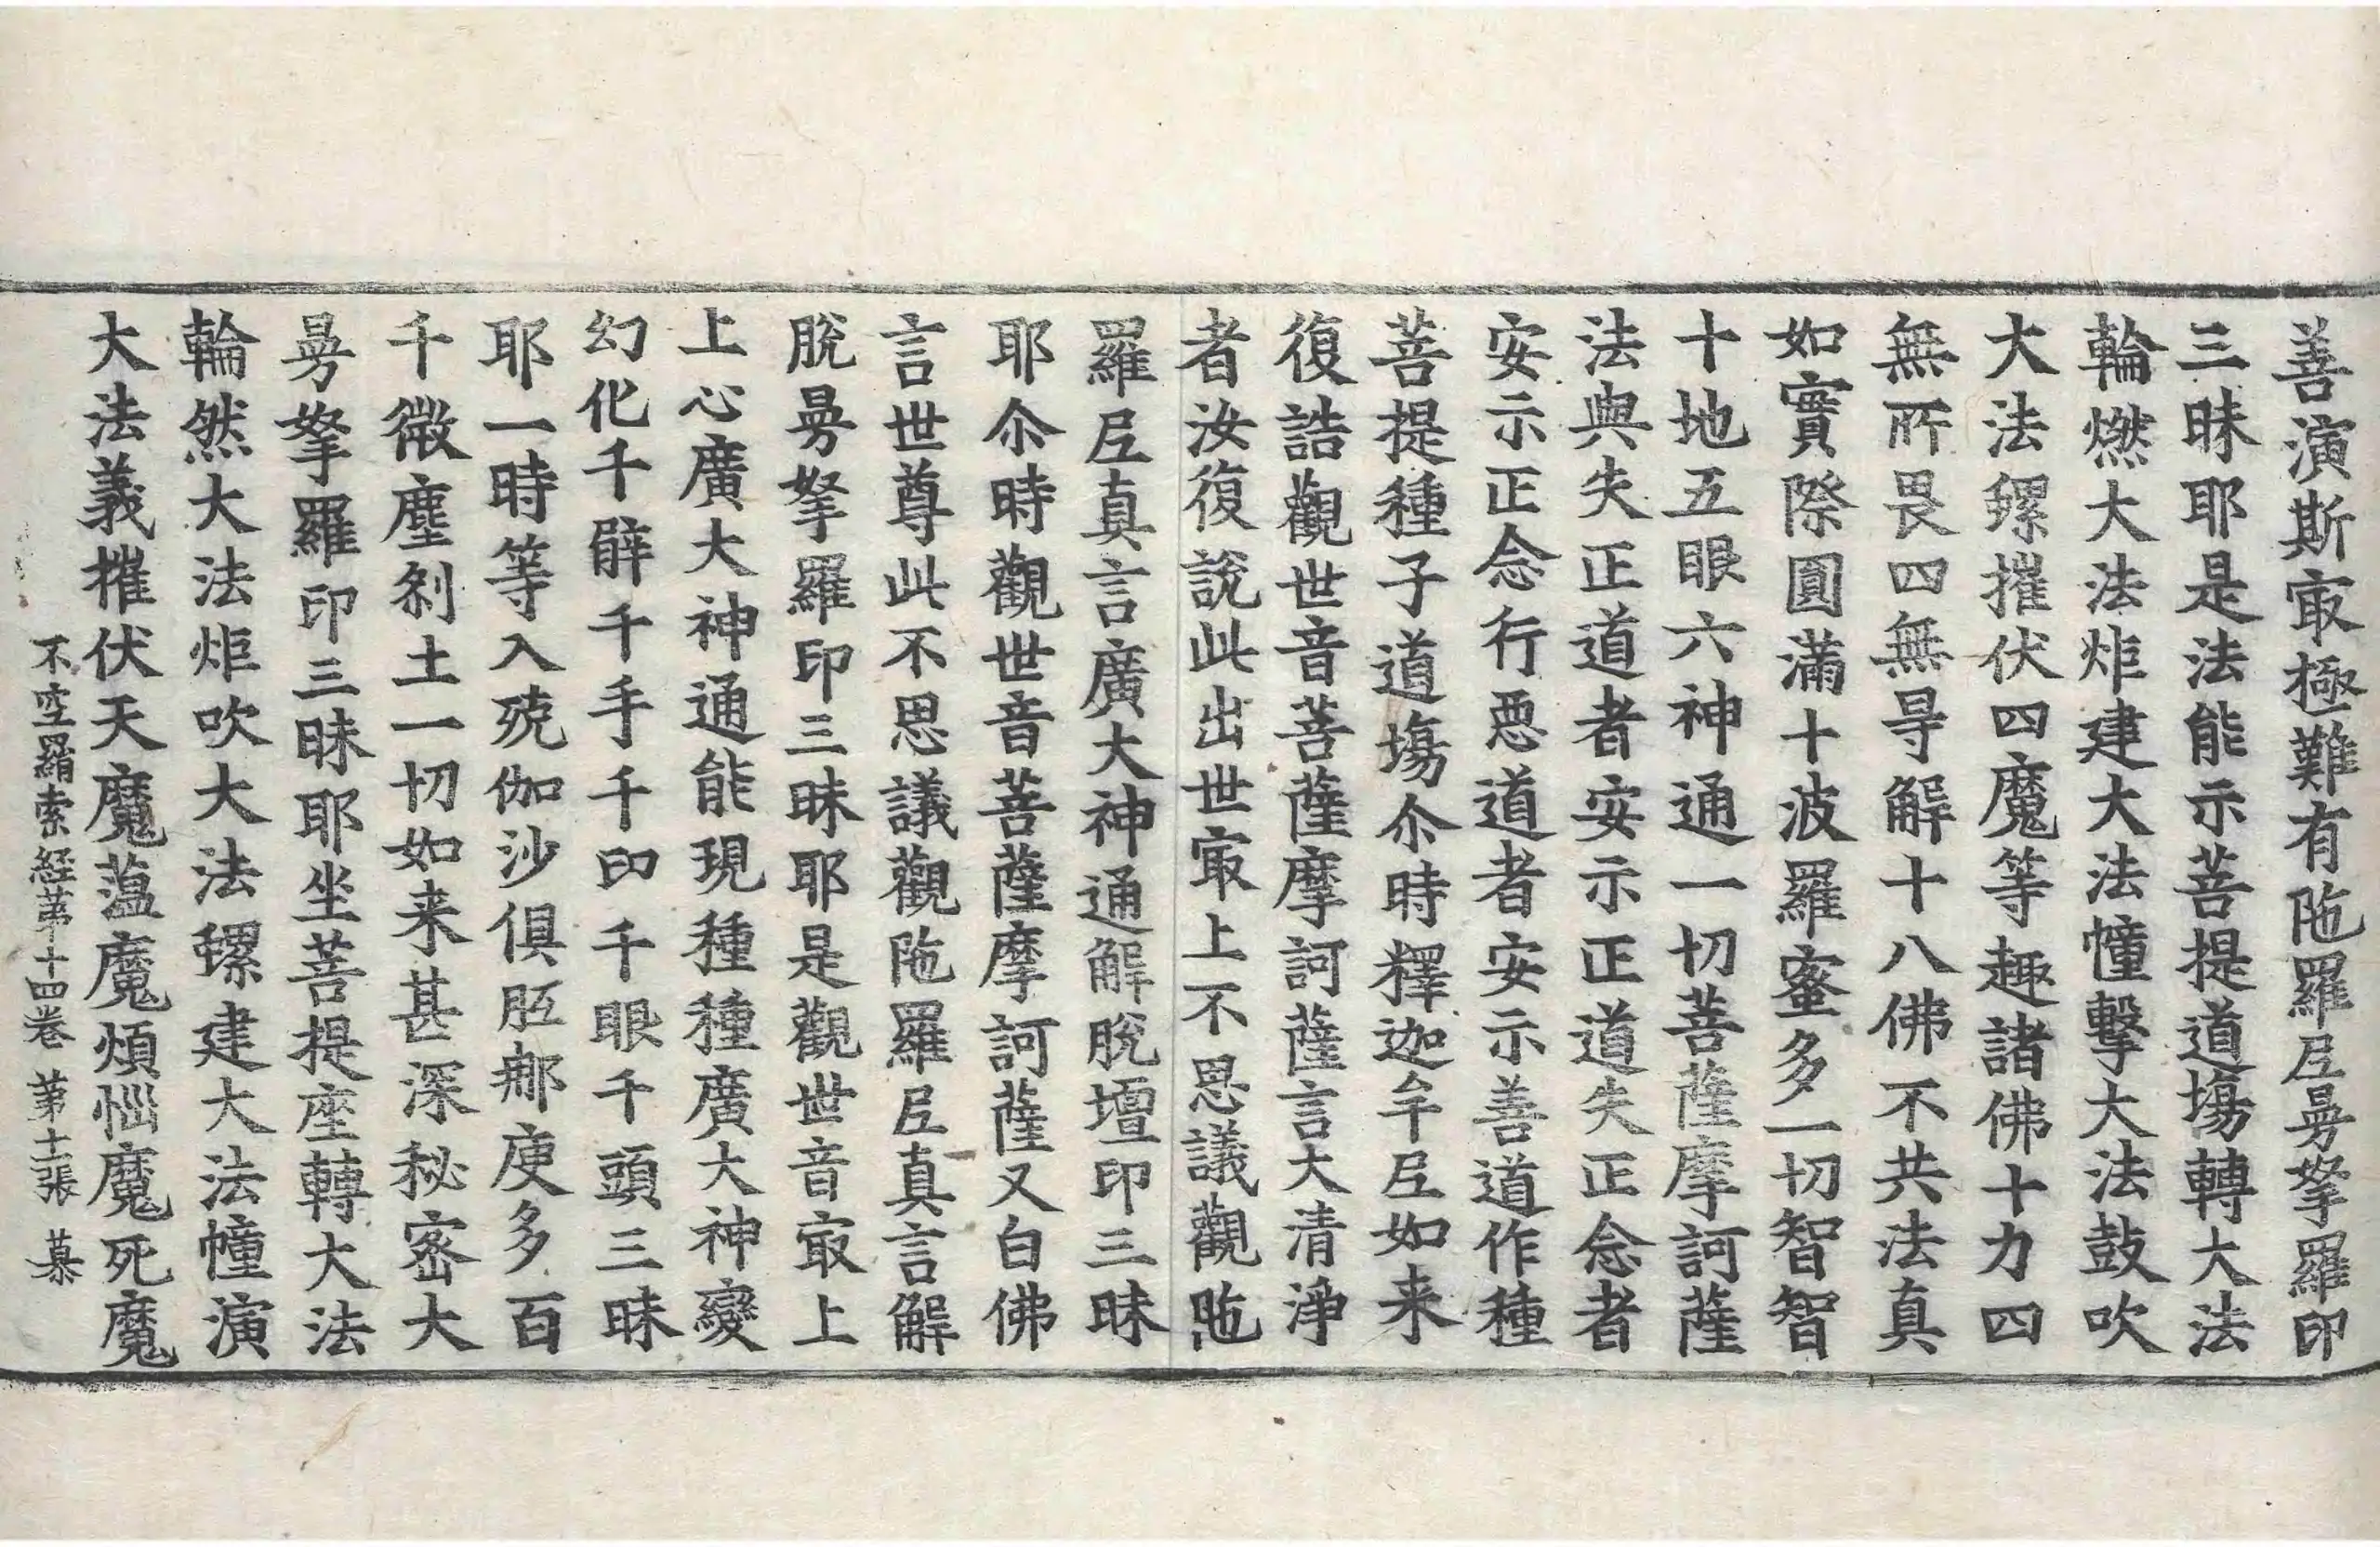 善演斯㝡極難有陁羅尼曼拏羅印
三昧耶是法能示菩提道場轉大法
輪燃大法炬建大法幢擊大法鼓吹
大法螺摧伏四魔等趣諸佛十力四
無所畏四無㝵解十八佛不共法真
如實際圓滿十波羅蜜多一切智智
十地五眼六神通一切菩薩摩訶薩
法與失正道者安示正道失正念者
安示正念行惡道者安示善道作種
菩提種子道場尒時釋迦牟尼如来
復誥觀世音菩薩摩訶薩言大清淨
者汝復說此出世㝡上不思議觀陁
羅尼真言廣大神通解脫壇印三昧
耶尒時觀世音菩薩摩訶薩又白佛
言世尊此不思議觀陁羅尼真言解
脫曼拏羅印三昧耶是觀世音㝡上
上心廣大神通能現種種廣大神變
幻化千臂千手千印千眼千頭三昧
耶一時等入殑伽沙俱胝那庾多百
千微塵剎土一切如来甚深秘密大
曼拏羅印三昧耶坐菩提座轉大法
輪然大法炬吹大法螺建大法幢演
大法義摧伏天魔蘊魔煩惱魔死魔
不空羂索經第十四卷 第十二張 慕